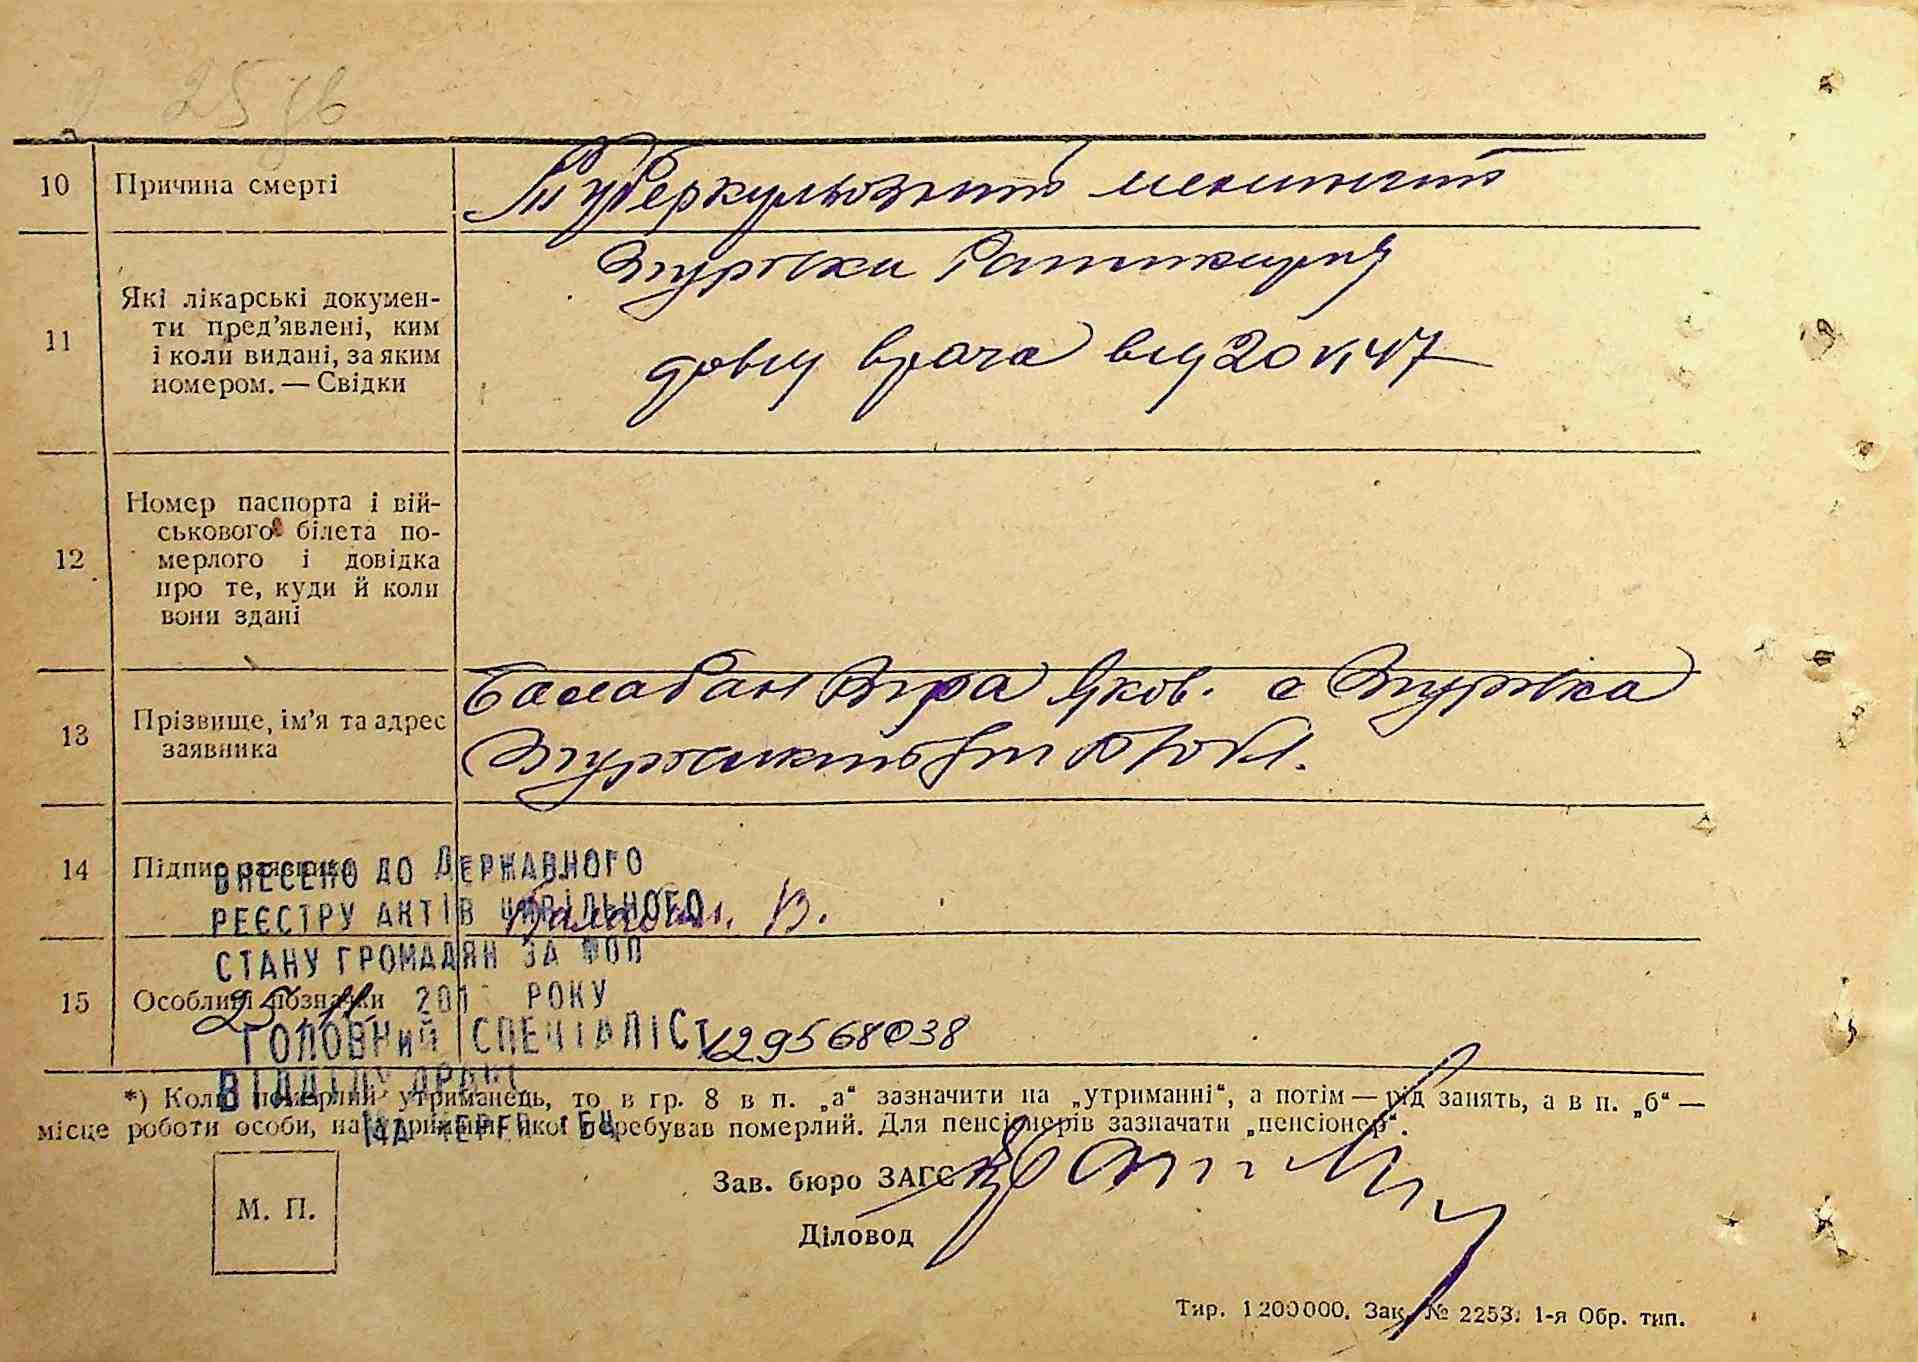 10 Причина смерті Туберкульозний менингит
11 Які лікарські докумен-
ти пред'явлені, ким
і коли видані, за яким
номером. — Свідки
Згурівки
врача 20 VI 47
12 Номер паспорта і вій-
ськового білета по-
мерлого і довідка
про те, куди й коли
вони здані
13 Прізвище, ім'я та адрес
заявника
Балабан Віра Яков. с Згурівка
14 Підпис заявника
Балабан. В.
15 Особливі позначки
ВНЕСЕНО ДО ДЕРЖАВНОГО
РЕЄСТРУ АКТІВ ЦИВІЛЬНОГО
СТАНУ ГРОМАДЯН ЗА №
25. 11. 201 РОКУ
ГОЛОВНИЙ СПЕЦІАЛІСТ
ВІДДІЛУ ДРАЦС
129568038
*) Коли померлий утриманець, то в гр. 8 в п. „а“ зазначити на „утриманні“, а потім — рід занять, а в п. „б“ —
місце роботи особи, на утриманні якої перебував померлий. Для пенсіонерів зазначати „пенсіонер“.
М. П.
Зав. бюро ЗАГС
Діловод
Тир. 1200000. Зак. № 2253. 1-я Обр. тип.